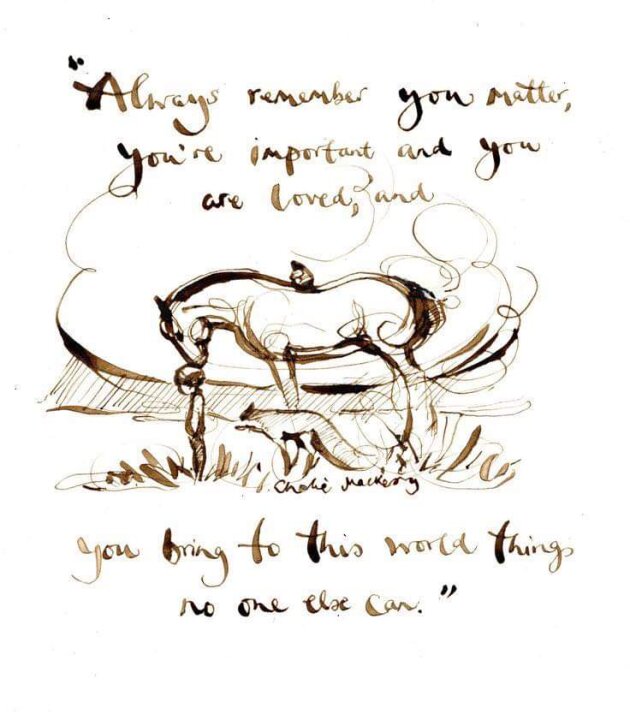 "Always remember you matter,
you're important and you
are loved, and
Charlie Mackesy
you bring to this world things
no one else can."